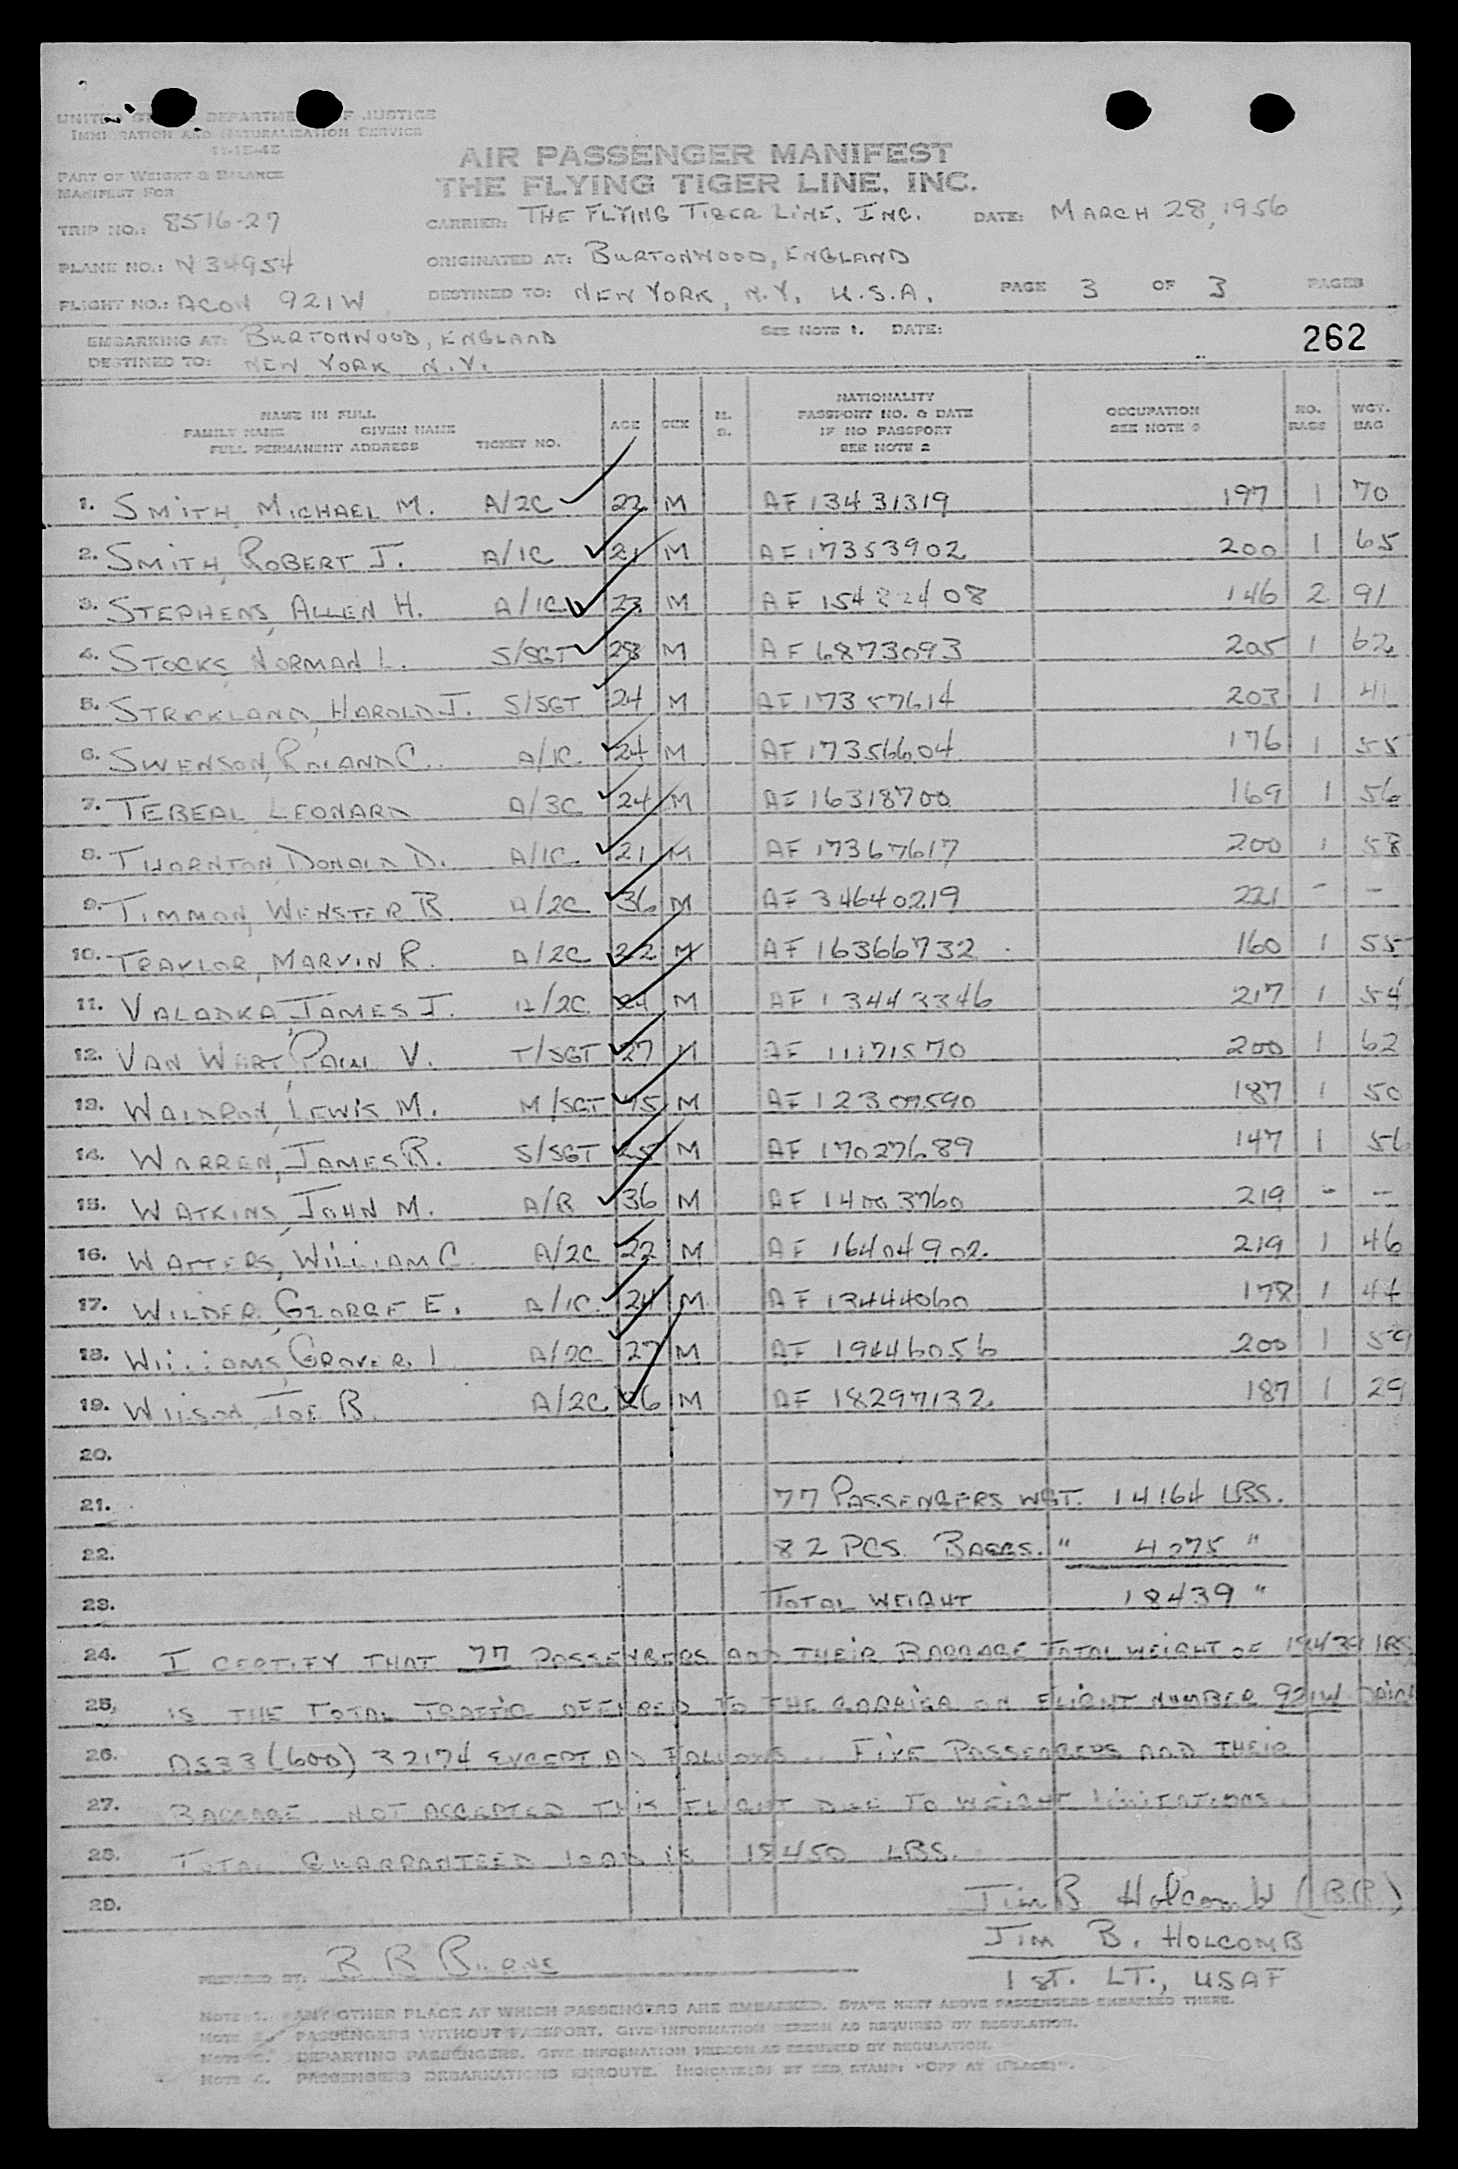 UNITED ST DEPARTMENT OF JUSTICE
IMMIGRATION AND NATURALIZATION SERVICE
11-15-45
PART OF WEIGHT & BALANCE
MANIFEST FOR
AIR PASSENGER MANIFEST
THE FLYING TIGER LINE, INC.
TRIP NO.: 8516-27 CARRIER: THE FLYING TIGER LINE, INC. DATE: MARCH 28, 1956
PLANE NO.: N34954 ORIGINATED AT: BURTONWOOD, ENGLAND
FLIGHT NO.: ACON 921W DESTINED TO: NEW YORK, N.Y. U.S.A. PAGE 3 OF 3 PAGES
EMBARKING AT: BURTONWOOD, ENGLAND SEE NOTE 1. DATE: 262
DESTINED TO: NEW YORK N.Y.
NAME IN FULL
FAMILY NAME GIVEN NAME
FULL PERMANENT ADDRESS TICKET NO. AGE SEX M. S. NATIONALITY PASSPORT NO. & DATE IF NO PASSPORT SEE NOTE 2 OCCUPATION SEE NOTE NO. BAGS WGT. BAG
1. SMITH, MICHAEL M. A/2C 22 M AF 13431319 197 1 70
2. SMITH, ROBERT J. A/1C 21 M AF 17353902 200 1 65
3. STEPHENS, ALLEN H. A/1C 23 M AF 15482408 146 2 91
4. STOCKS, NORMAN L. S/SGT 28 M AF 6873093 205 1 62
5. STRICKLAND, HAROLD J. S/SGT 24 M AF 17357614 203 1 41
6. SWENSON, ROLAND C. A/1C 24 M AF 17356604 176 1 55
7. TEBEAL LEONARD A/3C 24 M AF 16318700 169 1 56
8. THORNTON, DONALD D. A/1C 21 M AF 17367617 200 1 58
9. TIMMON, WENSTER B. A/2C 36 M AF 34640219 221 - -
10. TRAYLOR, MARVIN R. A/2C 22 M AF 16366732 160 1 55
11. VALANKA, JAMES J. A/2C 24 M AF 13443346 217 1 54
12. VAN WERT, PAUL V. T/SGT 27 M AF 11171570 200 1 62
13. WALDRON, LEWIS M. M/SGT M AF 187 1 50
14. WARREN, JAMES R. S/SGT 25 M AF 17027689 147 1 56
15. WATKINS, JOHN M. A/B 36 M AF 14003760 219 - -
16. WATTERS, WILLIAM C. A/2C 22 M AF 16404902. 219 1 46
17. WILDER, GEORGE E. A/1C 24 M AF 13444060 178 1 44
18. WILLIAMS, GROVER I A/2C 27 M AF 19446056 200 1 59
19. WILSON, JOE B. A/2C 26 M AF 18297132. 187 1 29
20.
21. 77 PASSENGERS WGT. 14164 LBS.
22. 82 PCS. BAGGS. " 4275 "
23. TOTAL WEIGHT 18439 "
24. I CERTIFY THAT 77 PASSENGERS AND THEIR BAGGAGE TOTAL WEIGHT OF 18439 LBS
25. IS THE TOTAL TRAFFIC OFFERED TO THE CARRIER ON FLIGHT NUMBER 921W
26. 33(600) 32174 EXCEPT AS FOLLOWS.. FIVE PASSENGERS AND THEIR
27. BAGGAGE NOT ACCEPTED THIS FLIGHT DUE TO WEIGHT LIMITATIONS.
28. TOTAL GUARRANTEED LOAD IS 18450 LBS.
29. Jim B Holcomb
JIM B. HOLCOMB
PREPARED BY: R R
1 ST. LT., USAF
NOTE 1. ANY OTHER PLACE AT WHICH PASSENGERS ARE EMBARKED. STATE NEXT ABOVE PASSENGERS EMBARKED THERE.
NOTE 2. PASSENGERS WITHOUT PASSPORT. GIVE INFORMATION HEREON AS REQUIRED BY REGULATION.
NOTE 3. DEPARTING PASSENGERS. GIVE INFORMATION HEREON AS REQUIRED BY REGULATION.
NOTE 4. PASSENGERS DEBARKATIONS ENROUTE. INDICATE(D) BY RED STAMP: "OFF AT (PLACE)".